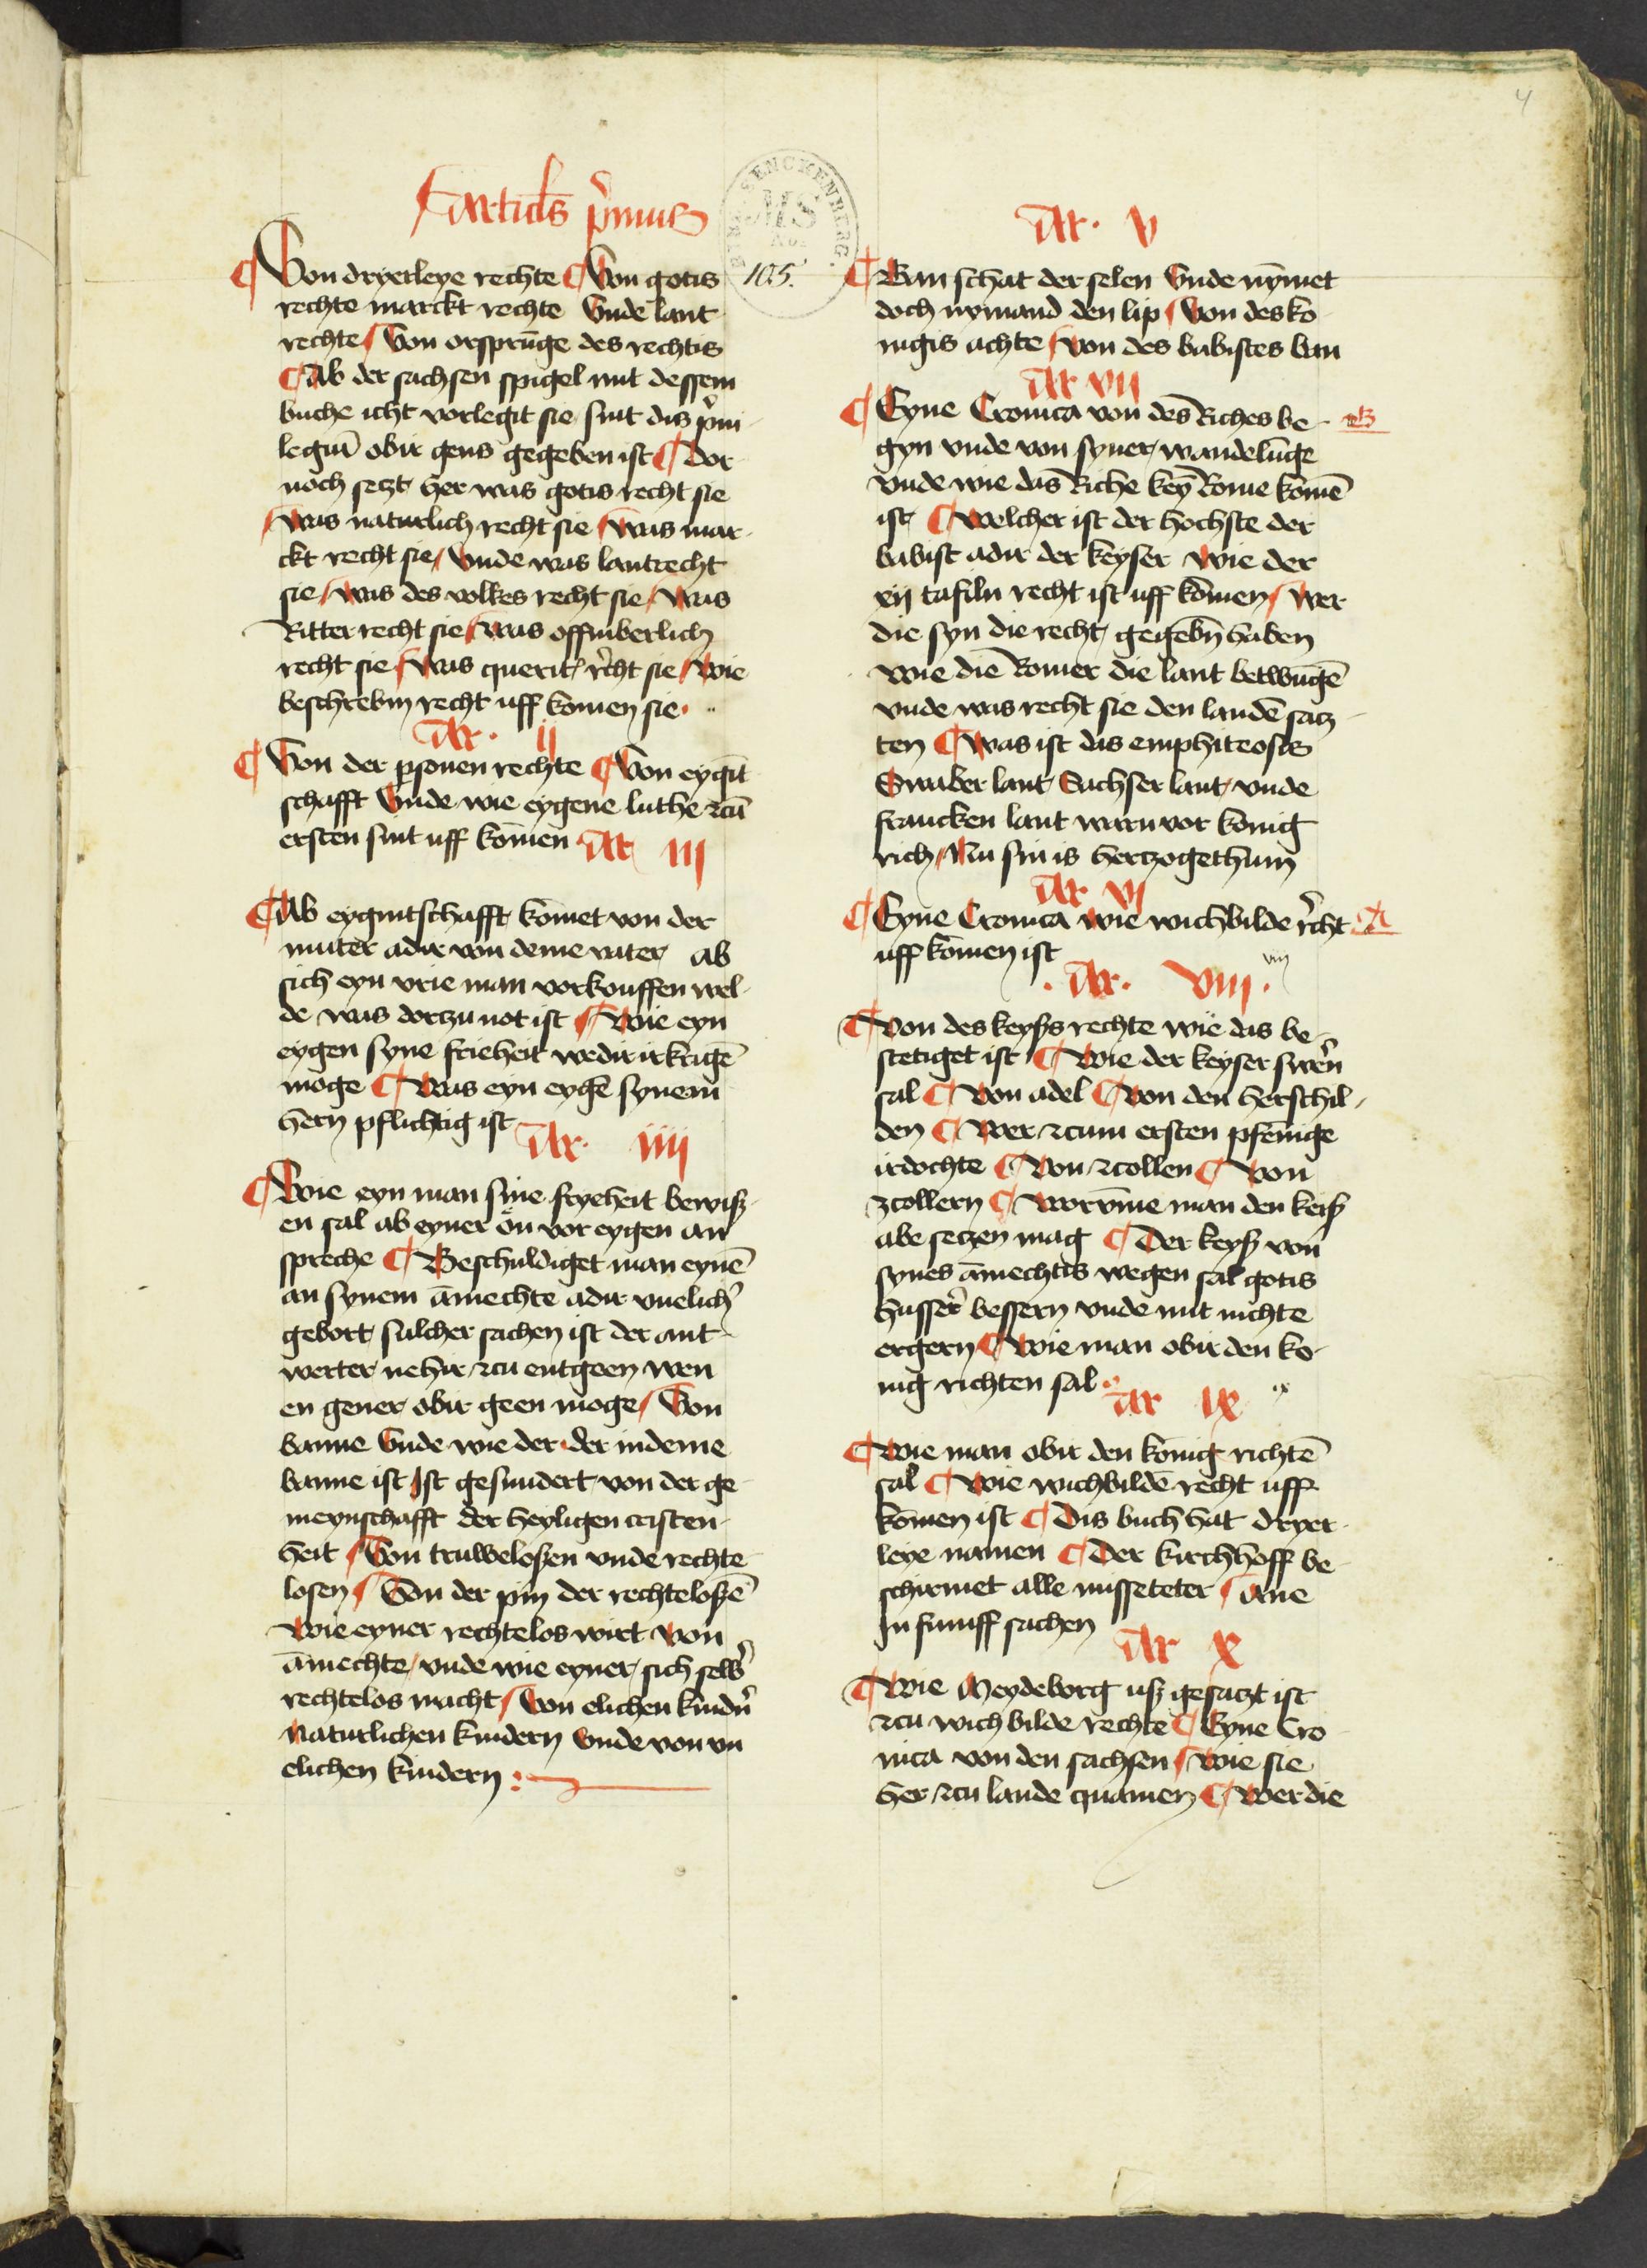 4
Articl's p'mus
BIBL. SENCKENBERG.
MS
105.
¶ Von dryerleye rechte ¶ Von gotis
rechte marckt rechte Vnde lant
rechte Von orsprūge des rechtis
¶ Ab der sachsen spigel mit dessem
buche icht vorlegit sie sint dis p'ui
legiū obir gens gegeben ist ¶ Dor
noch setzt her was gotis recht sie
was naturlich recht sie was mar
ckt recht sie vnde was lantrecht
sie was des volkes recht sie was
Ritter recht sie was offinberlich
recht sie was querit r'cht sie wie
beschrebin recht uff komen sie
Ar. ij
¶ Von der psonen rechte ¶ Von eygīt
schafft Vnde wie eygene luthe zcū
ersten sint uff komen
Ar iij
¶ Ab eygintschafft komet von der
muter adir von deme vater ab
sich eyn vrie man vorkouffen wel
de was dorzu not ist ¶ Wie eyn
eygen syne frieheit wedir irkrigē
moge ¶ Was eyn eygē synem
hern pflichtig ist
Ar. iiij
¶ Wie eyn man sine fryeheit bewisz
en sal ab eyner ön vor eygen an
spreche ¶ Beschuldiget man eynē
an synem āmechte adir vnelich'
gebort sulcher sachen ist der ant
werter nehir zcu entgeen wen
en gener obir geen moge Von
banne Vnde wie der der in deme
banne ist Ist gesundert von der ge
meynschafft der heyligen cristen
heit Von truweloszen vnde rechte
losen Von der pin der rechteloszē
Wie eyner rechtelos wirt von
āmechte vnde wie eyner sich selb'
rechtelos macht Von elichen kind'n
Naturlichen kindern Vnde von vn
elichen kindern
Ar. V
¶ Ban schat der selen Vnde nȳmet
doch nymand den lip Von des ko
nigis achte Von des babistes ban
Ar VII
¶ Eyne Cronica von des Riches be B
gyn vnde von syner wandelūge
vnde wie das Riche keȳ Rome komē
ist ¶ Welcher ist der hochste der
babist adir der keyser Wie der
xij tafiln recht ist uff komen Wer
die syn die recht gegebn̄ haben
wie die Romer die lant betwūgē
vnde was recht sie den landē satz
ten ¶ Was ist das emphiteosis
Swaber lant Sachser lant vnde
francken lant warn vor konig
rich Nu sin is hertzogethum
Ar VI
¶ Eyne Cronica wie wichbilde r'cht A
uff komen ist
viij
Ar. VIII.
¶ Von des keyszs rechte wie das be
stetiget ist ¶ Wie der keyser swern
sal ¶ Von adel ¶ Von den herschil
den ¶ Wer zcum ersten pfēnige
irdochte ¶ Von zcollen ¶ Von
zcollern ¶ Worvme man den keisz
abe setzen mag ¶ Der keysz von
synes āmechtis wegen sal gotis
husser' bessern vnde mit nichte
ergern ¶ Wie man obir den ko
nig richten sal
Ar IX
ix
¶ Wie man obir den konig richtē
sal ¶ Wie wichbildē recht uff
komen ist ¶ Dis buch hat dryer
leye namen ¶ Der kirchhoff be
schirmet alle misseteter Ane
In funff sachen
Ar X
¶ Wie Meydeborg usz gesatzt ist
zcu wichbilde rechte ¶ Eyne Cro
nica von den sachsen Wie sie
her zcu lande quamen ¶ Wer die